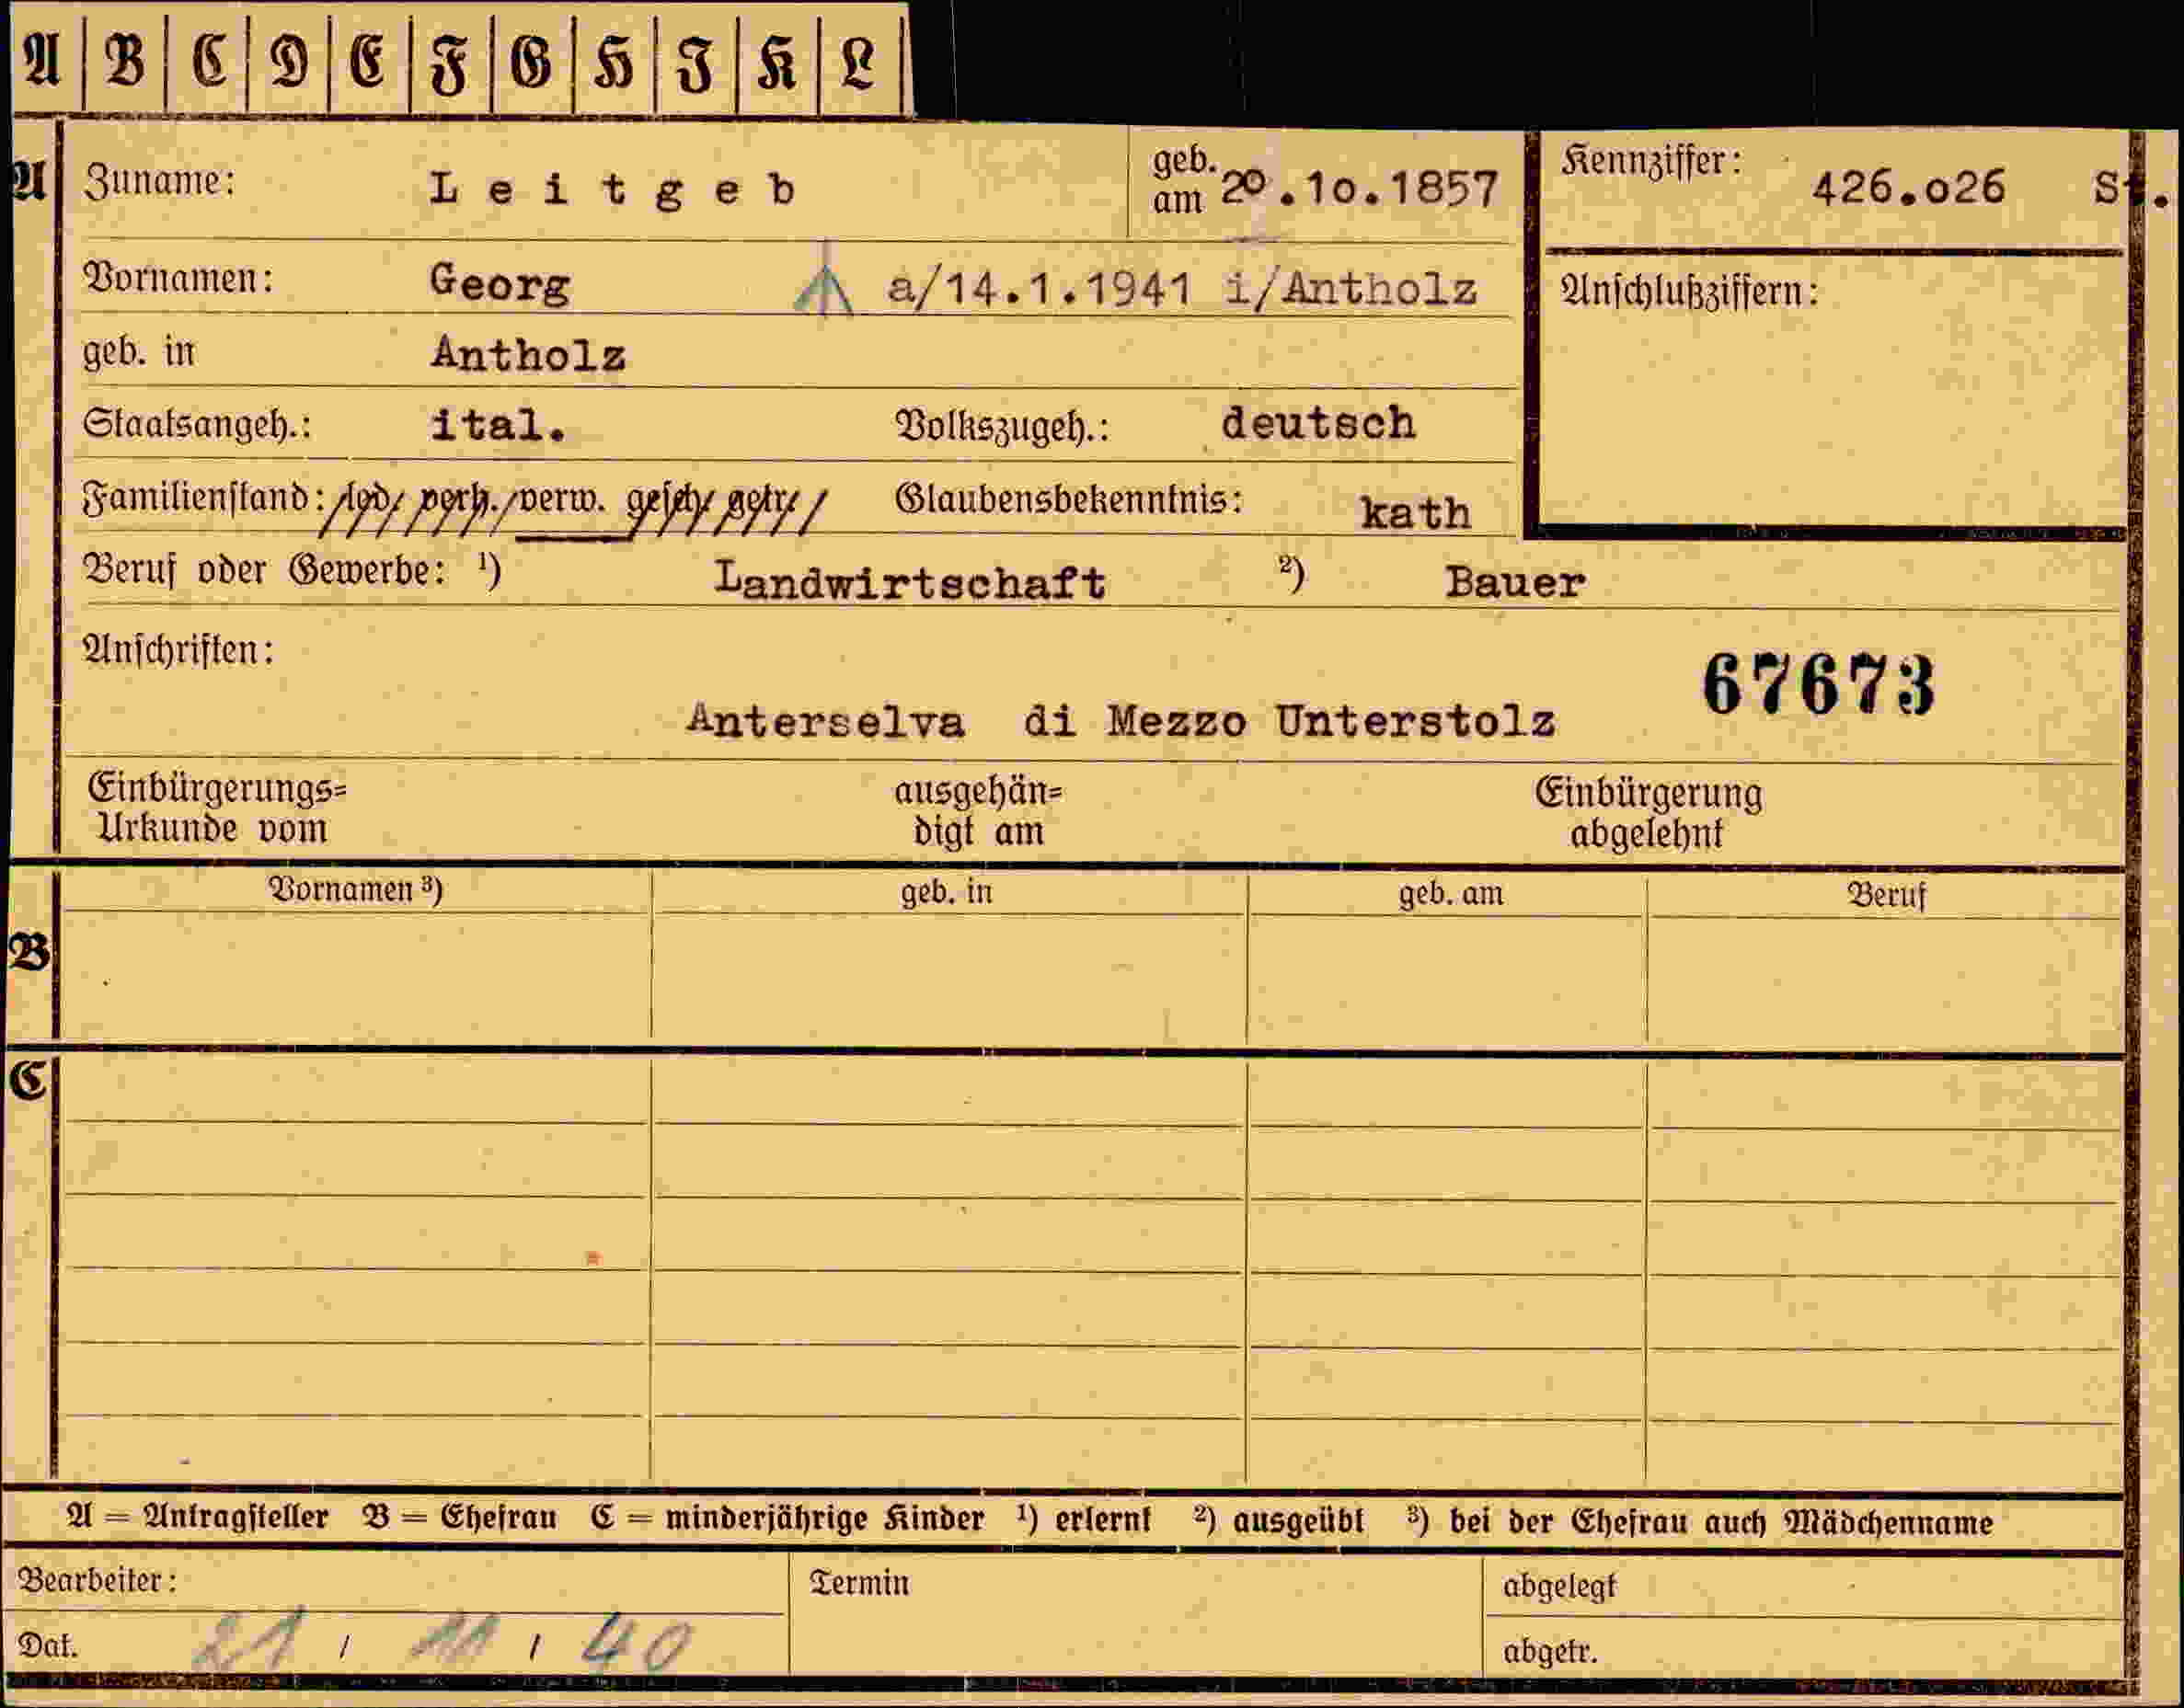 A B C D E F G H I K L
A Zuname: Leitgeb geb. am 20.10.1857 Kennziffer: 426.026 St.
Vornamen: Georg a/14.1.1941 i/Antholz Anschlußziffern:
geb. in Antholz
Staatsangeh.: ital. Volkszugeh.: deutsch
Familienstand: led. verh. verw. gesch. getr. Glaubensbekenntnis: kath
Beruf oder Gewerbe: ¹) Landwirtschaft ²) Bauer
Anschriften:
67673
Anterselva di Mezzo Unterstolz
Einbürgerungs= ausgehän= Einbürgerung
Urkunde vom digt am abgelehnt
Vornamen ³) geb. in geb. am Beruf
B
C
A = Antragsteller B = Ehefrau C = minderjährige Kinder ¹) erlernt ²) ausgeübt ³) bei der Ehefrau auch Mädchenname
Bearbeiter: Termin abgelegt
Dat. 21 / 11 / 40 abgetr.